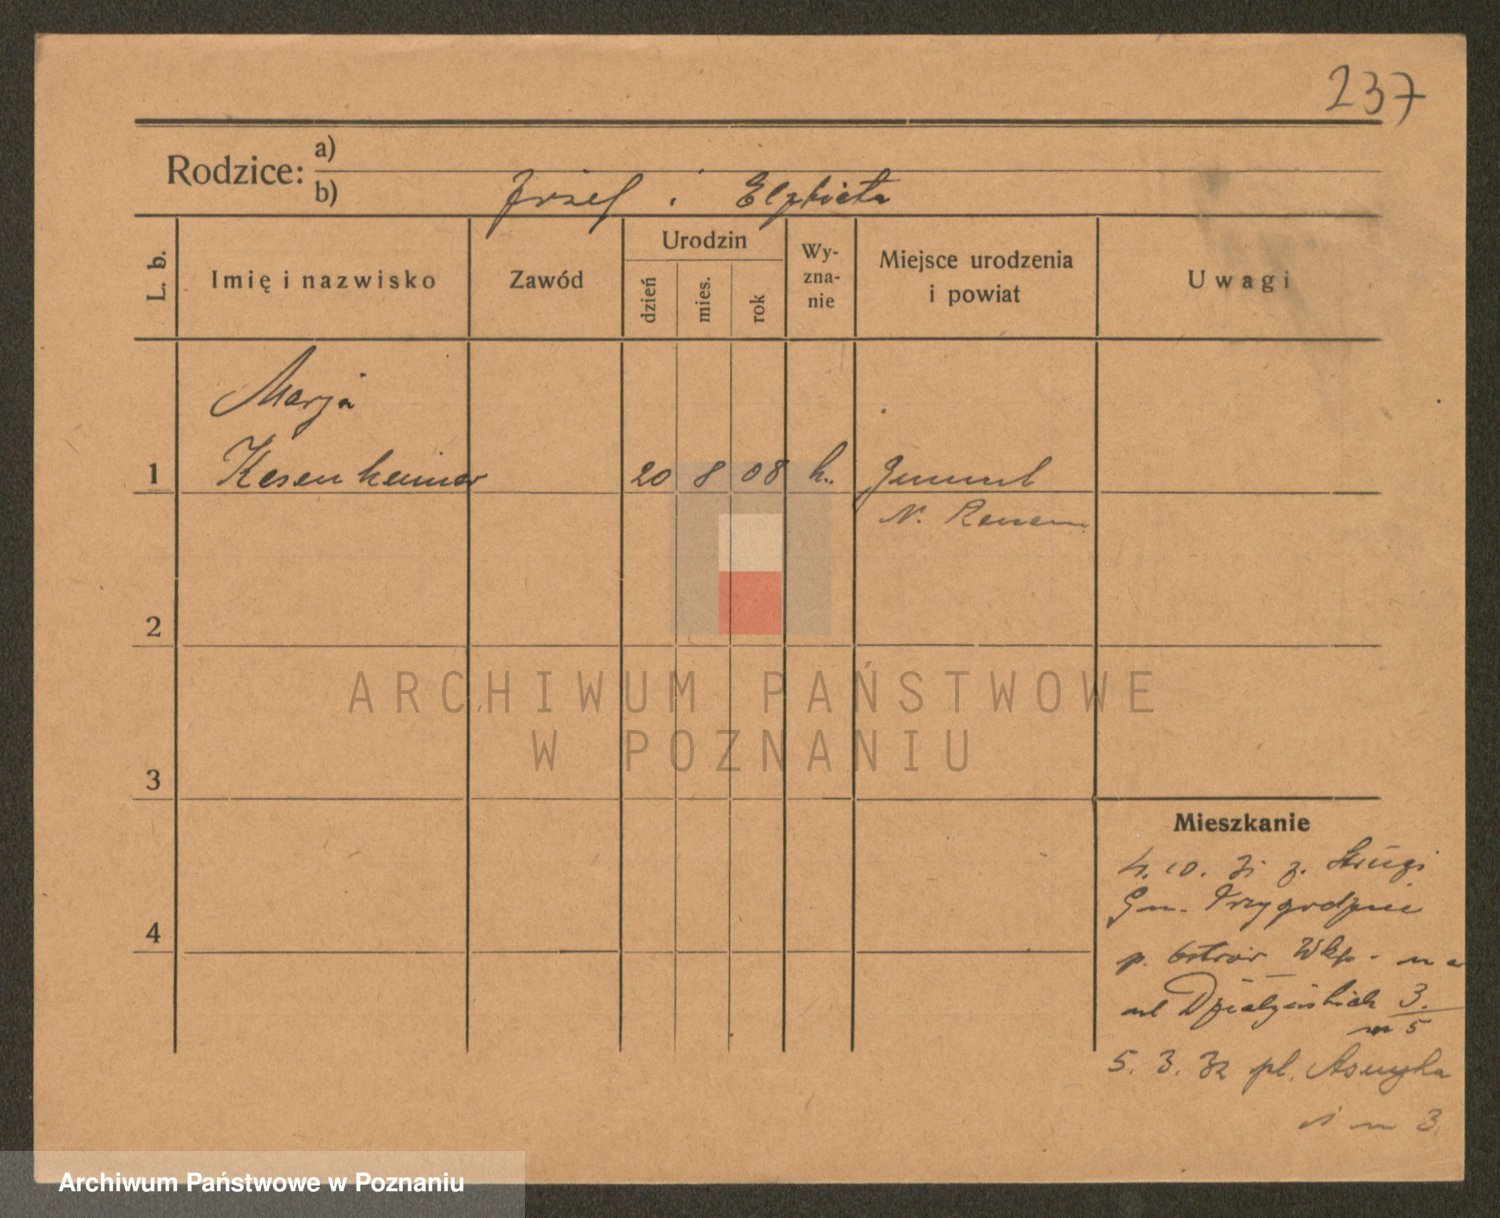 237
Rodzice: a)
b) Józef i Elżbieta
L. b.
Imię i nazwisko
Zawód
Urodzin
dzień
mies.
rok
Wy-
zna-
nie
Miejsce urodzenia
i powiat
Uwagi
Marja
1 Kesenheimer 20 8 08
2
ARCHIWUM PAŃSTWOWE
W POZNANIU
3
Mieszkanie
4. 10. 31 z. Strugi
Gm. Przygodzice
4
p. Ostrów Wkp. na
ul Działyńskich 3.
m 5
5. 3. 32 pl. Asnyka
m 3.
Archiwum Państwowe w Poznaniu